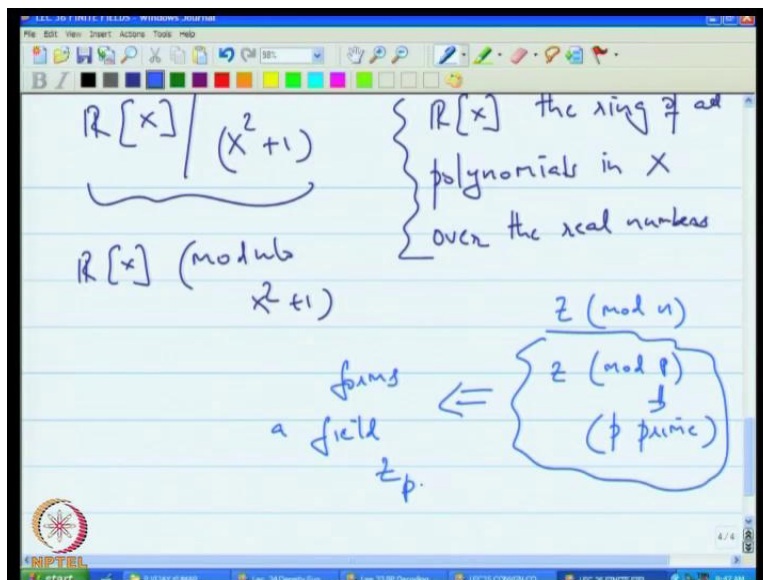 LEC 36 FINITE FIELDS - Windows Journal
File Edit View Insert Actions Tools Help
98%
B I
ℝ [x] / (x² + 1)
{ ℝ [x] the ring of all
polynomials in X
over the real numbers
ℝ [x] (modulo
x² + 1)
Z (mod n)
Z (mod p)
↓
(p prime)
⇐
forms
a field
Z_p.
4/4
NPTEL
start